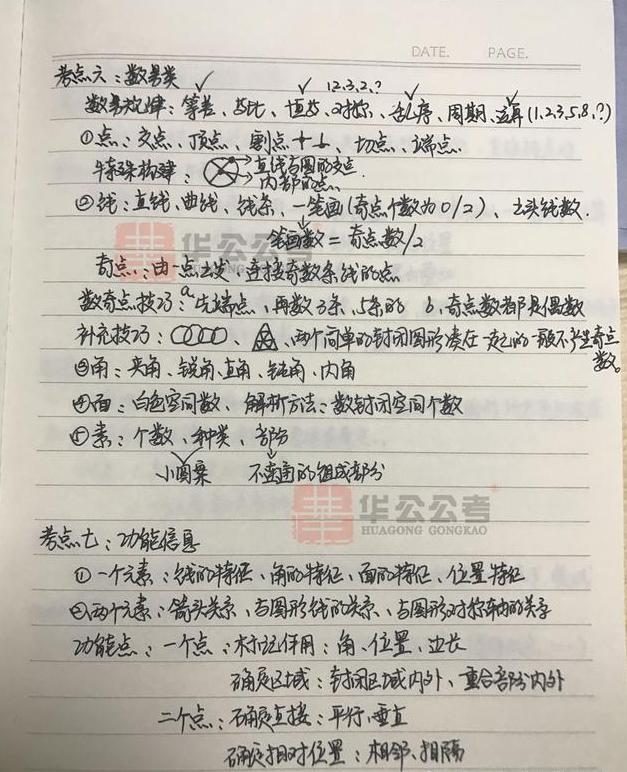 DATE. PAGE.
考点六：数量类
12,3,2,?
数量规律：等差、等比、恒等、对称、乱序、周期、运算(1,2,3,5,8,?)
①点：交点、顶点、割点、切点、端点.
特殊构建：直线与圆的交点
内部的点.
②线：直线、曲线、线条、一笔画(奇点个数为0/2)、出头线数.
笔画数=奇点数/2
奇点：由一点出发，连接奇数条线的点
数奇点技巧：a先端点，再数3条、5条的 b，奇点数都是偶数
补充技巧：两个简单的封闭图形凑在一起的一般不产生奇点
数。
③角：夹角、锐角、直角、钝角、内角
④面：白色空间数、解析方法：数封闭空间个数
⑤素：个数、种类、部分
小图案 不连通的组成部分
华公公考
HUAGONG GONGKAO
考点七：功能信息
①一个元素：线的特征、角的特征、面的特征、位置特征
②两个元素：箭头关系、与图形线的关系、与图形对称轴的关系
功能点：一个点：标记作用：角、位置、边长
确定区域：封闭区域内外、重合部分内外
二个点：确定直接：平行、垂直
确定相对位置：相邻、相隔